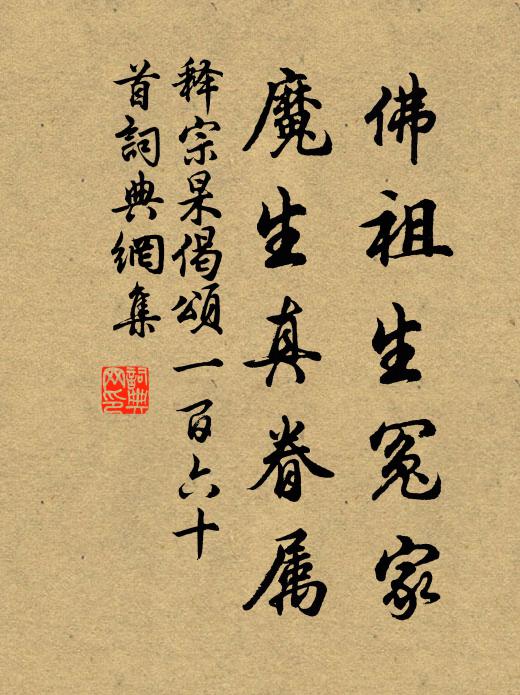 佛祖生冤家
魔生真眷属
释宗杲偈頌一百六十
首詞典網集
詞典
网印